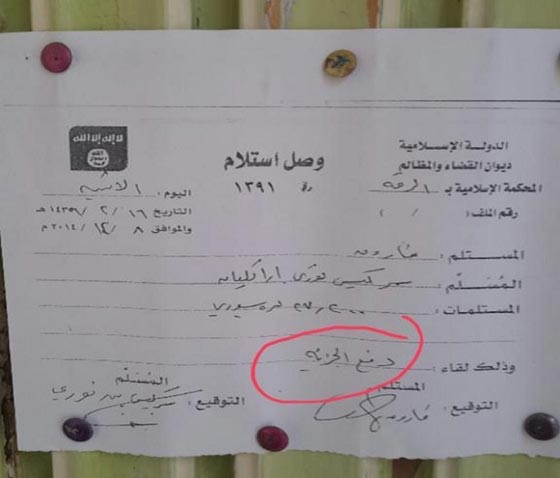 الدولة الإسلامية
ديوان القضاء والمظالم
المحكمة الإسلامية بـ الرقة
رقم الملف: / /
لا إله إلا الله
الله
رسول
محمد
وصل استلام
رقم ١٣٩١
اليوم: الاثنين
التاريخ ١٦ / ٢ / ١٤٣٦ هـ
والموافق ٨ / ١٢ / ٢٠١٤ م
المستلم: فاروق
المُسَلِّم: سركيس نوري اراكليان
المستلمات: ليرة سوري
وذلك لقاء: دفع الجزية
المستلم
التوقيع: فاروق
المُسَلِّم
التوقيع: سركيس بن نوري